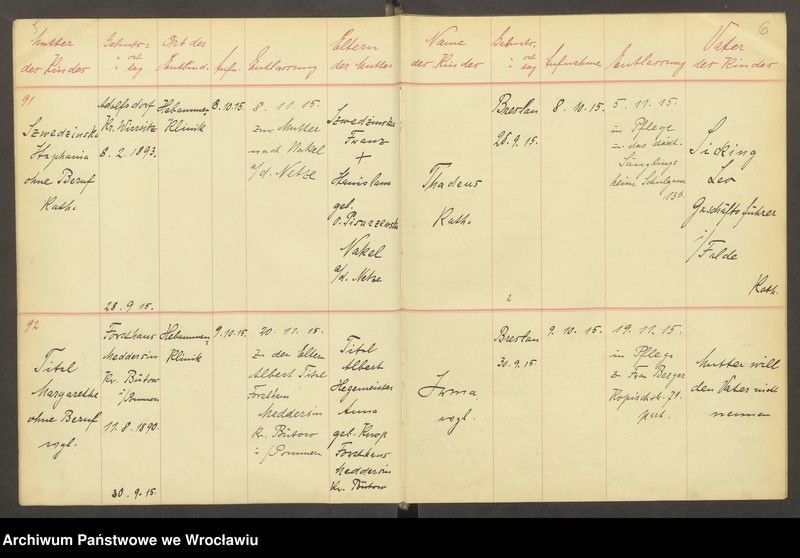 6
Mutter
der Kinder
Geburts=
ort
u. tag
Ort der
Entbind.
Aufn.
Entlassung
Eltern
der Mutter
Name
der Kinder
Geburts,
ort
u. tag
Aufnahme
Entlassung
Vater
der Kinder
91
Szwedzinska
Stephania
ohne Beruf
Kath.
Adolfsdorf
Kr. Wirsitz
8. 2. 1893.
28. 9. 15.
Hebammen,
Klinik
8.10.15.
8. 11. 15.
zur Mutter
nach Nakel
a/d. Netze
Szwedzinska
Franz
+
Stanislawa
geb.
Nakel
a/d. Netze
Thadeus
Kath.
Breslau
28.9.15.
2
8. 10. 15.
5. 11. 15.
in Pflege
in das städt.
Säuglings
heim
Sicking
Leo
Geschäftsführer
i/
Kath.
92
Titel
Margarethe
ohne Beruf
evgl.
Forsthaus
Meddersin
Kr. Bütow
i/Pommern
11. 8. 1890.
30. 9. 15.
Hebammen,
Klinik
9.10.15.
20. 11. 15.
zu den Eltern
Albert Titel
Forsthaus
Meddersin
Kr. Bütow
i/Pommern
Titel
Albert
Hegemeister
Anna
geb. Knop
Forsthaus
Meddersin
Kr. Bütow
Irma
evgl.
Breslau
30. 9. 15
9. 10. 15.
19. 11. 15.
in Pflege
z. Frau Berger
Kopischstr. 71.
part.
Mutter will
den Vater nicht
nennen
Archiwum Państwowe we Wrocławiu